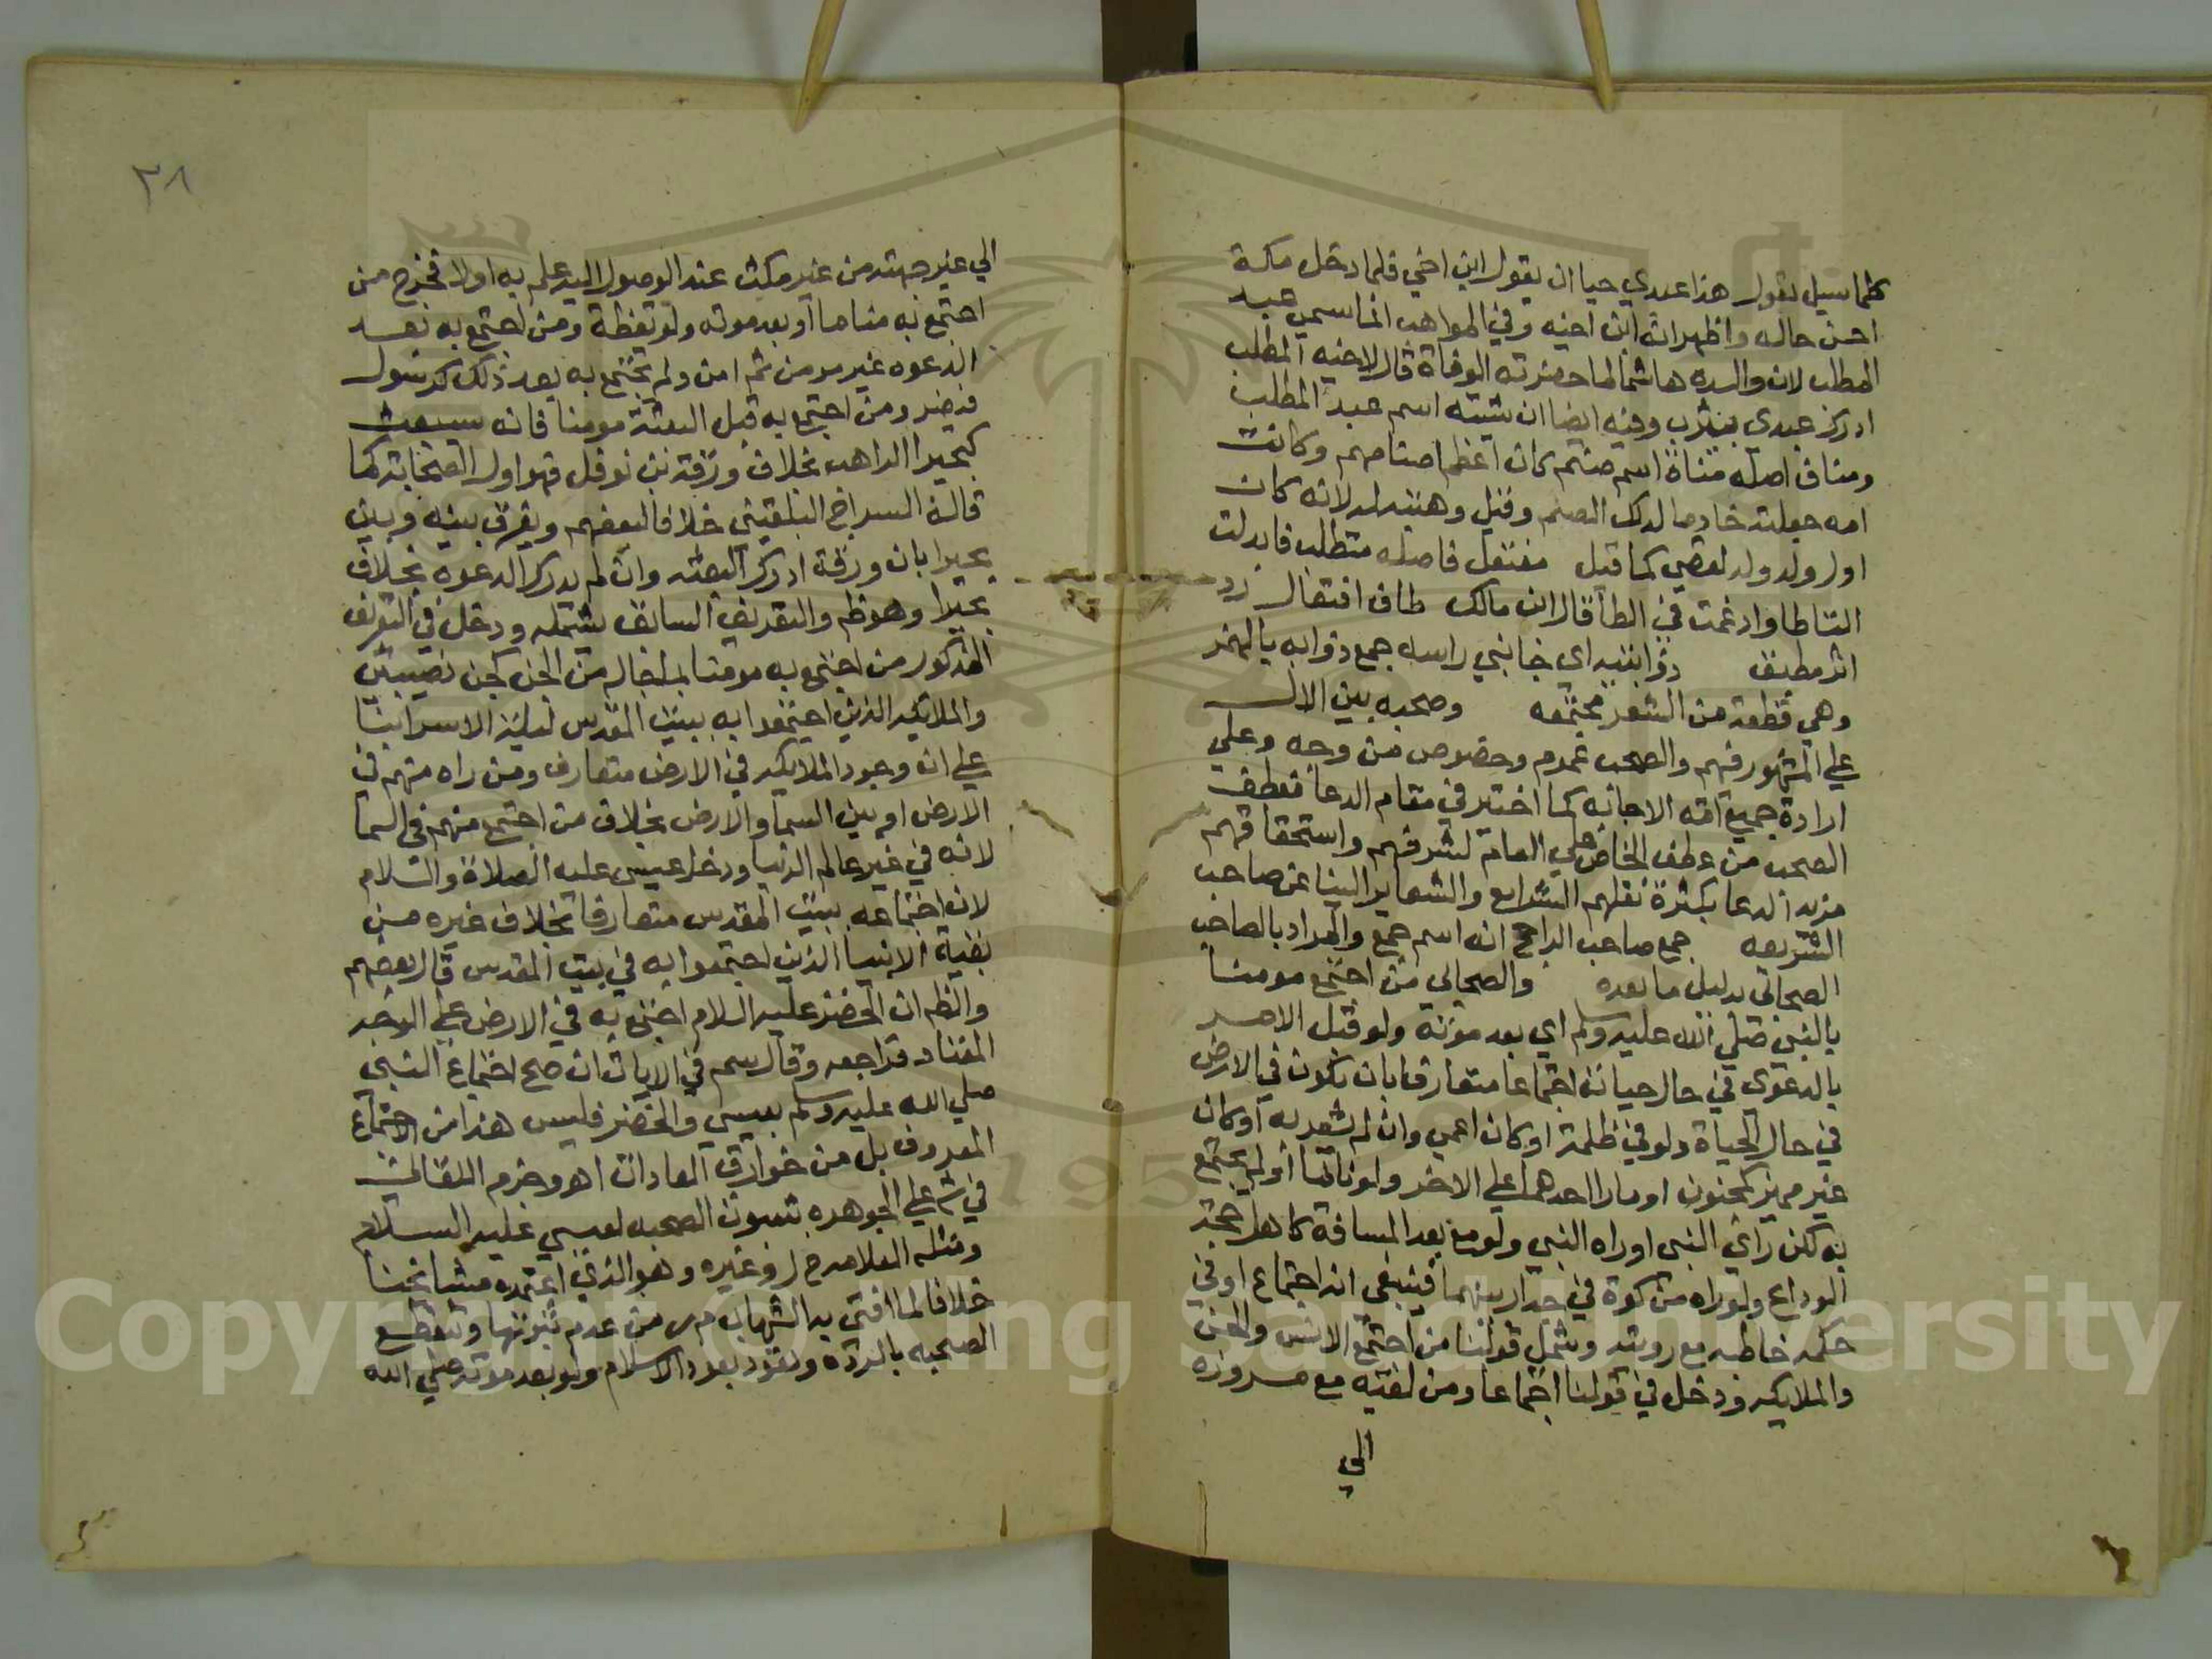 كلما سيل يقول هذا عبدي حيا ان يقول ابن اخي فلما دخل مكة
احسن حاله واظهر انه ابن اخيه وفي المواهب انما سمي عبد
المطلب لان والده هاشما لما حضرته الوفاة قال لاخيه المطلب
ادرك عبدي بيثرب وفيه ايضا ان شيبه اسم عبد المطلب
ومناف اصله مناة اسم صنم كان اعظم اصنامهم وكانت
امه جعلته خادما لذلك الصنم وقيل وهبته له لانه كان
اول ولد ولد لقصي كما قيل مفتعل فاصله متطلب فابدلت
التا طا وادغمت في الطا قال ابن مالك طا تا افتعال رد
اثر مطبق ذؤابتيه اي جانبي راسه جمع ذؤابه بالهمز
وهي قطعة من الشعر مجتمعه وصحبه بين الال
علي المشهور فيهم والصحب عموم وخصوص من وجه وعلي
ارادة جميع امة الاجابه كما اختير في مقام الدعا فعطف
الصحب من عطف الخاص علي العام لشرفهم واستحقاقهم
مزيد الدعا بكثرة نقلهم الشرايع والشعاير الينا عن صاحب
الشريعه جمع صاحب الراجح انه اسم جمع والمراد بالصاحب
الصحابي بدليل ما بعده والصحابي من اجتمع مومنا
بالنبي صلي الله عليه وسلم اي بعد موته ولو قبل الامر
بالدعوي في حال حياته اجتماعا متعارفا بان يكون في الارض
في حال الحياة ولو في ظلمة او كان اعمي وان لم يشعر به او كان
غير مميز كمجنون او مارا احدهما علي الاخر ولو نائما او لم يجتمع
به لكن راي النبي او راه النبي ولو مع بعد المسافة كاهل حجة
الوداع ولو راه من كوة في جدار بينهما فينبغي انه اجتماع او في
حكمه خاطبه مع رويته وشمل قولنا من اجتمع الانس والجن
والملايكه ودخل في قولنا اجتماعا ومن لقيه مع مروره
الي
٣٨
الي غير جهته من غير مكث عند الوصول اليه علم به اولا فخرج من
اجتمع به مناما او بعد موته ولو يقظة ومن اجتمع به بعد
الدعوه غير مومن ثم امن ولم يجتمع به بعد ذلك كرسول
قيصر ومن اجتمع به قبل البعثة مومنا فانه سيبعث
كبحيرا الراهب بخلاف ورقة بن نوفل فهو اول الصحابة كما
قاله السراج البلقيني خلافا لبعضهم ويفرق بينه وبين
بحيرا بان ورقة ادرك البعثه وان لم يدرك الدعوه بخلاف
بحيرا وهو ظم والتعريف السابق يشمله ودخل في التعريف
المذكور من اجتمع به مومنا بما جا به من الجن كجن نصيبين
والملايكه الذين اجتمعوا به ببيت المقدس ليلة الاسرا بنا
علي ان وجود الملايكه في الارض متعارف ومن راه منهم في
الارض او بين السما والارض بخلاف من اجتمع منهم في السما
لانه في غير عالم الدنيا ودخل عيسي عليه الصلاة والسلام
لان اجتماعه ببيت المقدس متعارفا بخلاف غيره من
بقية الانبيا الذين اجتمعوا به في بيت المقدس قال بعضهم
والظم ان الخضر عليه السلام اجتمع به في الارض علي الوجه
المعتاد فراجعه وقال سم في الايات ان صح اجتماع النبي
صلي الله عليه وسلم بعيسي والخضر فليس هذا من الاجتماع
المعروف بل من خوارق العادات اهـ وجزم اللقاني
في شرح علي الجوهره بثبوت الصحبه لعيسي عليه السلام
ومثله العلامه ح ل وغيره وهو الذي اعتمده مشايخنا
خلافا لما افتي به الشهاب م ر من عدم ثبوتها وتنقطع
الصحبه بالرده وتعود بعود الاسلام ولو بعد موته صلي الله